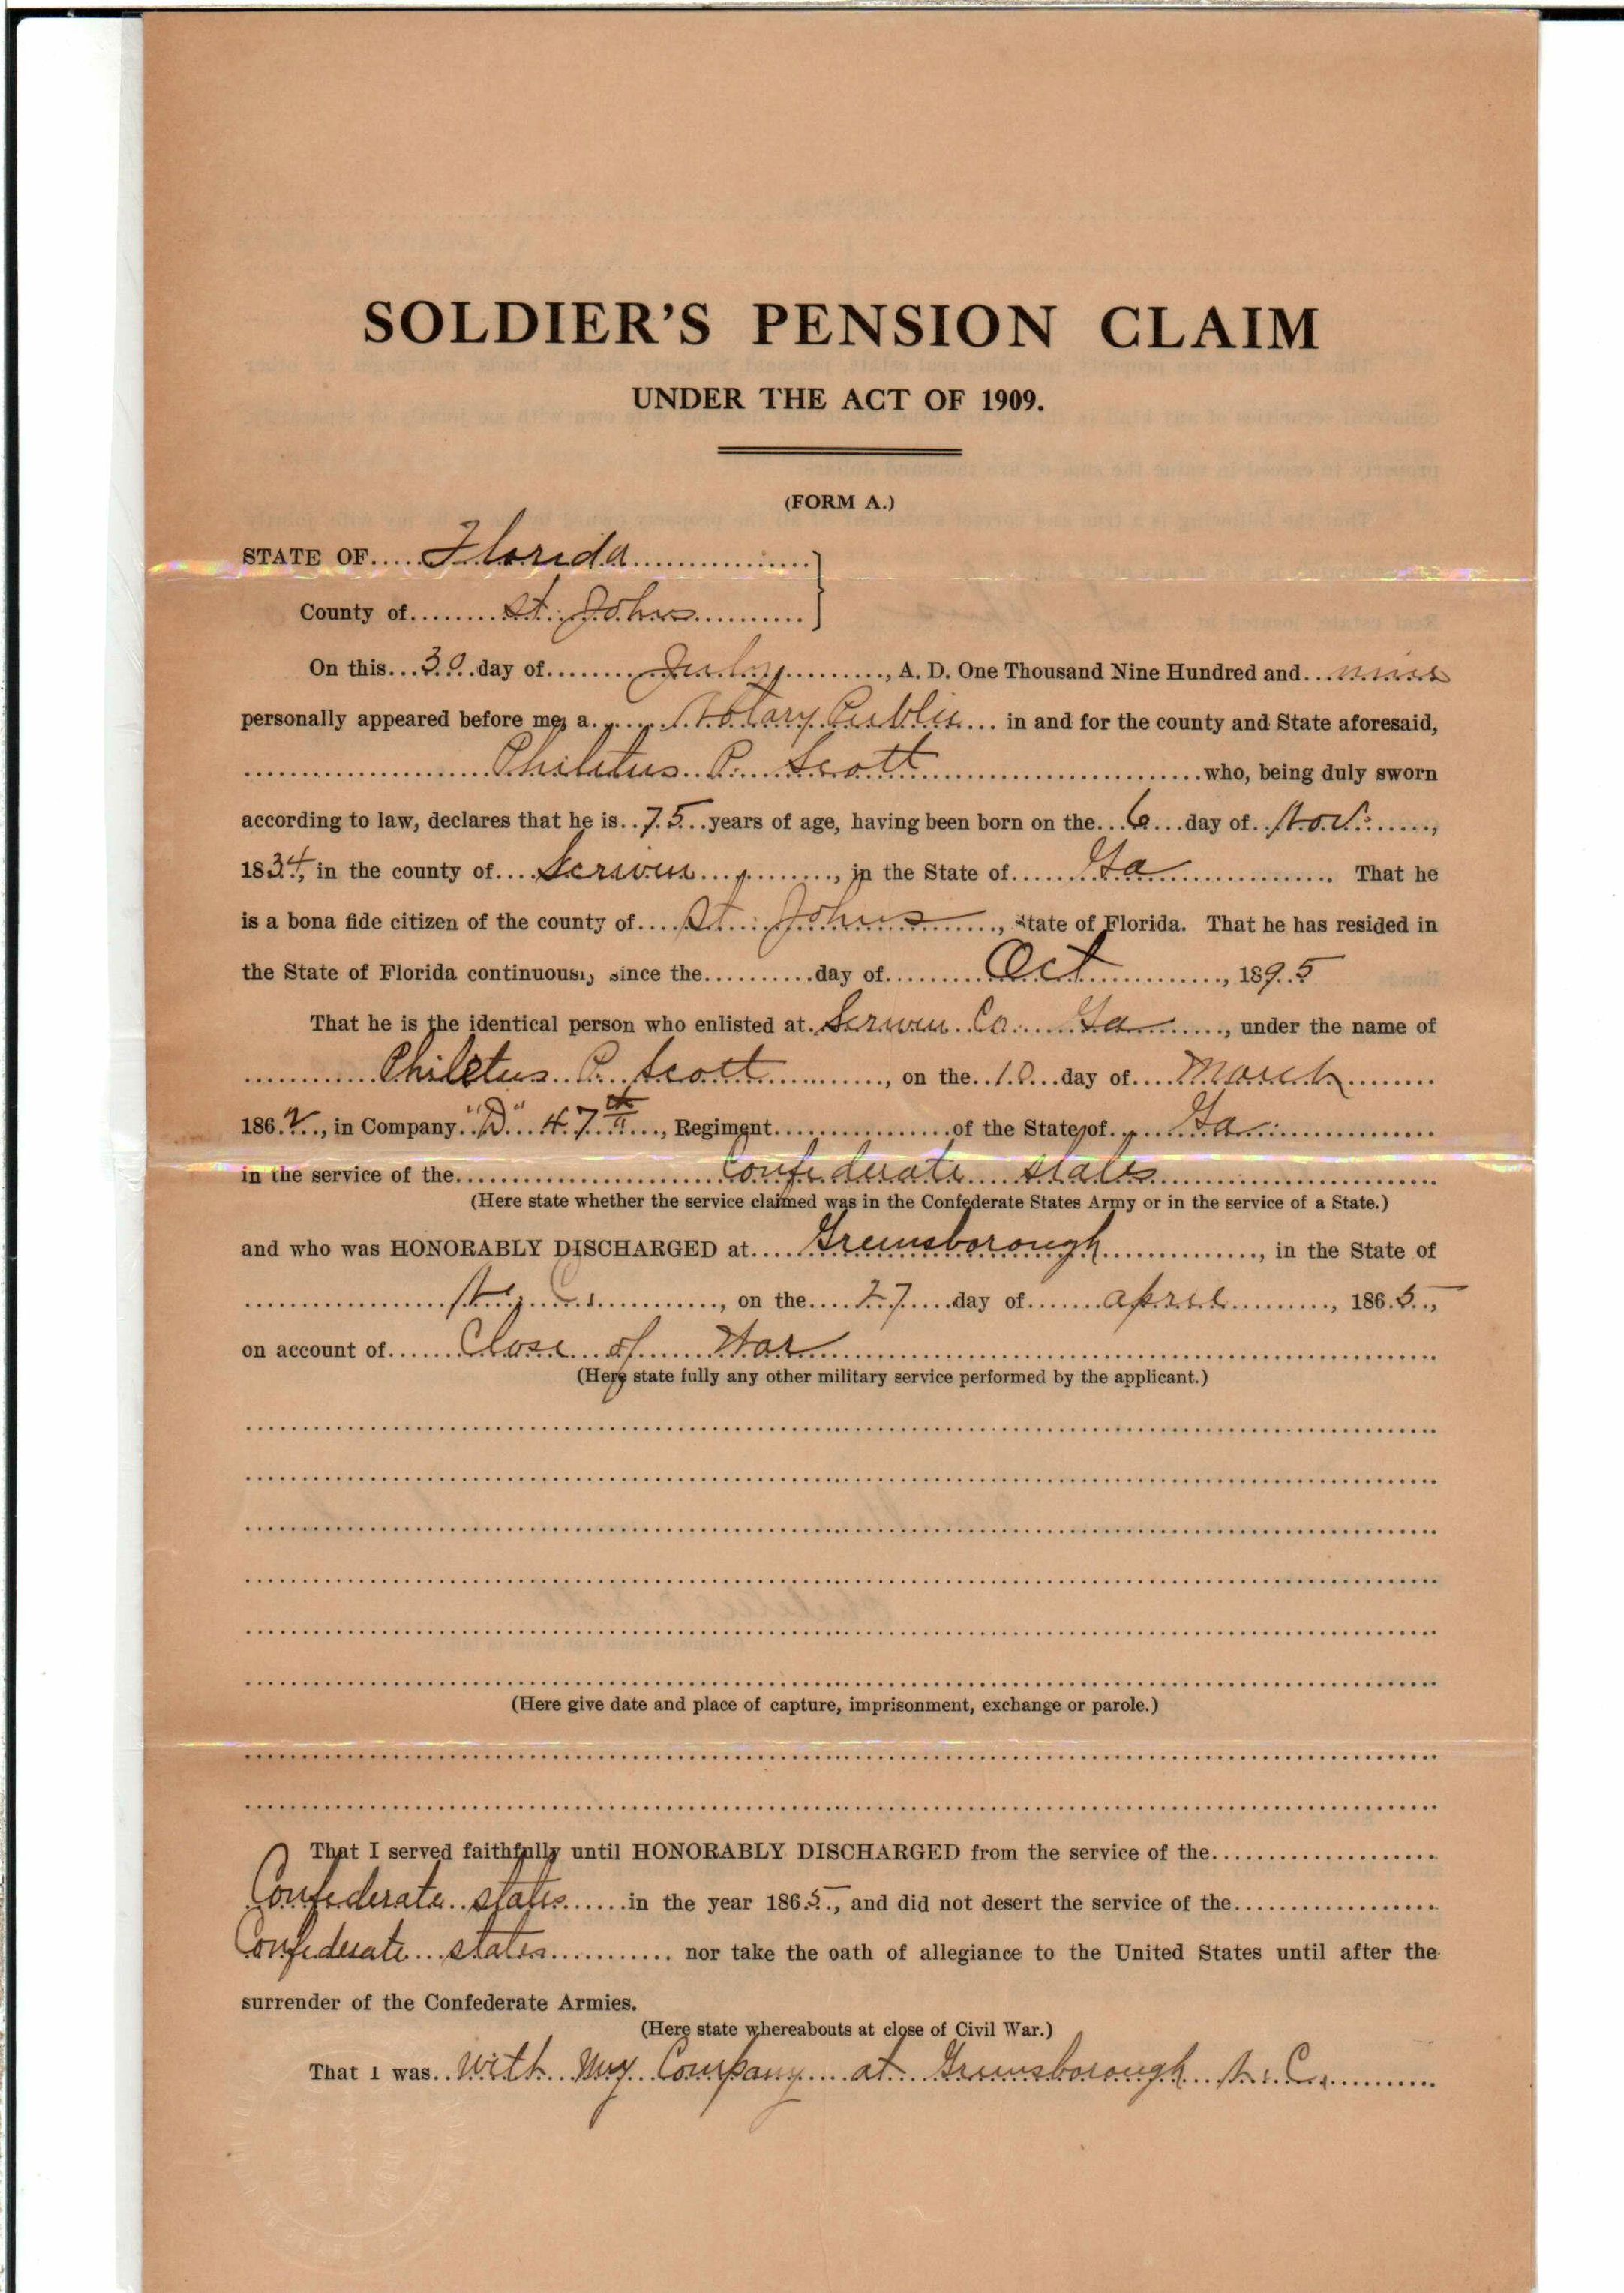 SOLDIER'S PENSION CLAIM
UNDER THE ACT OF 1909.
(FORM A.)
STATE OF Florida
County of St. Johns
On this 30 day of July, A. D. One Thousand Nine Hundred and nine
personally appeared before me, a Notary Public in and for the county and State aforesaid,
Philetus P. Scott who, being duly sworn
according to law, declares that he is 75 years of age, having been born on the 6 day of Nov.,
1834, in the county of Scriven, in the State of Ga That he
is a bona fide citizen of the county of St. Johns, State of Florida. That he has resided in
the State of Florida continuously since the day of Oct, 1895
That he is the identical person who enlisted at Scriven Co. Ga, under the name of
Philetus P. Scott, on the 10 day of March
1862, in Company "D" 47th, Regiment of the State of Ga
in the service of the Confederate states
(Here state whether the service claimed was in the Confederate States Army or in the service of a State.)
and who was HONORABLY DISCHARGED at Greensborough, in the State of
N. C., on the 27 day of april, 1865,
on account of Close of War
(Here state fully any other military service performed by the applicant.)
(Here give date and place of capture, imprisonment, exchange or parole.)
That I served faithfully until HONORABLY DISCHARGED from the service of the
Confederate states in the year 1865, and did not desert the service of the
Confederate states nor take the oath of allegiance to the United States until after the
surrender of the Confederate Armies.
(Here state whereabouts at close of Civil War.)
That I was With My Company at Greensborough N. C.